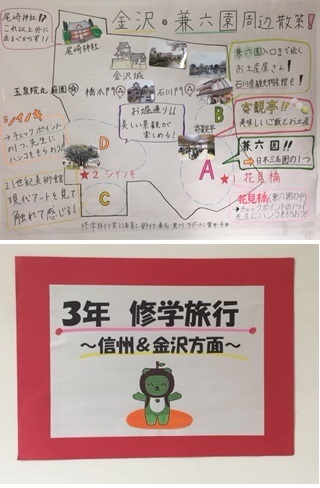 金沢・兼六園周辺散策!
尾崎神社!!
これ以上外に
出ないからす!!
尾崎神社
金沢城
玉泉院丸庭園
橋爪門
石川門
兼六園入口まで続く
お土産屋さん!
石川県観光物産館も!
お堀通り!!
美しい景観が
楽しめる!
B
寄観亭
寄観亭!
美味しいご飯とお土産
兼六園!!
→日本三名園の1つ
シイノキ
→チェックポイント
の1つ。先生に
ハンコをもらおう
D
★2 シイノキ
C
A
★1 花見橋
21世紀美術館
現代アートを見て
触れて感じる!
花見橋(兼六園の中)
→チェックポイントの1つ!
先生にハンコをもらおう
3年 修学旅行
~信州&金沢方面~